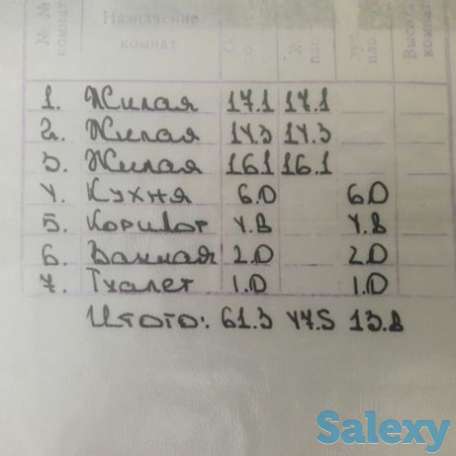 Назначение
комнат
1. Жилая 17.1 17.1
2. Жилая 14.3 14.3
3. Жилая 16.1 16.1
4. Кухня 6.0 6.0
5. Коридор 4.8 4.8
6. Ванная 2.0 2.0
7. Туалет 1.0 1.0
Итого: 61.3 47.5 13.8
Salexy